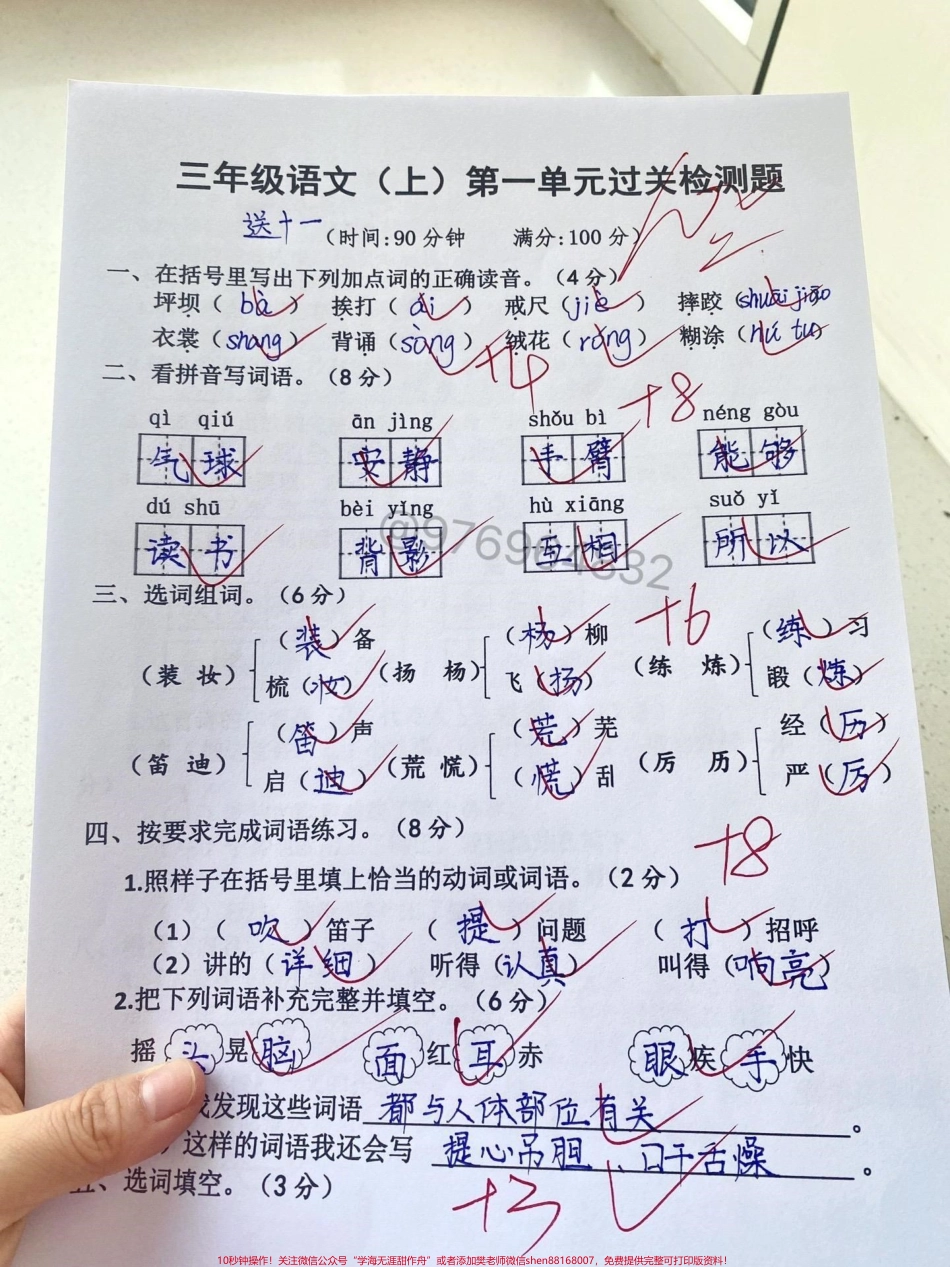 三年级语文（上）第一单元过关检测题
送十一（时间:90分钟 满分:100分）
一、在括号里写出下列加点词的正确读音。（4分）
坪坝（bà） 挨打（ái） 戒尺（jiè） 摔跤（shuāi jiāo
衣裳（shang） 背诵（sòng） 绒花（róng） 糊涂（hú tu）
+4
二、看拼音写词语。（8分）
+8
qì qiú ān jìng shǒu bì néng gòu
气球 安静 手臂 能够
dú shū bèi yǐng hù xiāng suǒ yǐ
读书 背影 互相 所以
@976964632
三、选词组词。（6分）
+6
（装）备 （杨）柳 （练）习
（装 妆） （扬 杨） （练 炼）
梳（妆） 飞（扬） 锻（炼）
（笛）声 （荒）芜 经（历）
（笛 迪） （荒 慌） （厉 历）
启（迪） （慌）乱 严（厉）
四、按要求完成词语练习。（8分）
+8
1.照样子在括号里填上恰当的动词或词语。（2分）
（1）（吹）笛子 （提）问题 （打）招呼
（2）讲的（详细） 听得（认真） 叫得（响亮）
2.把下列词语补充完整并填空。（6分）
摇头晃脑 面红耳赤 眼疾手快
发现这些词语都与人体部位有关。
这样的词语我还会写提心吊胆、口干舌燥。
、选词填空。（3分）
+3
10秒钟操作！关注微信公众号“学海无涯甜作舟”或者添加樊老师微信shen88168007，免费提供完整可打印版资料！